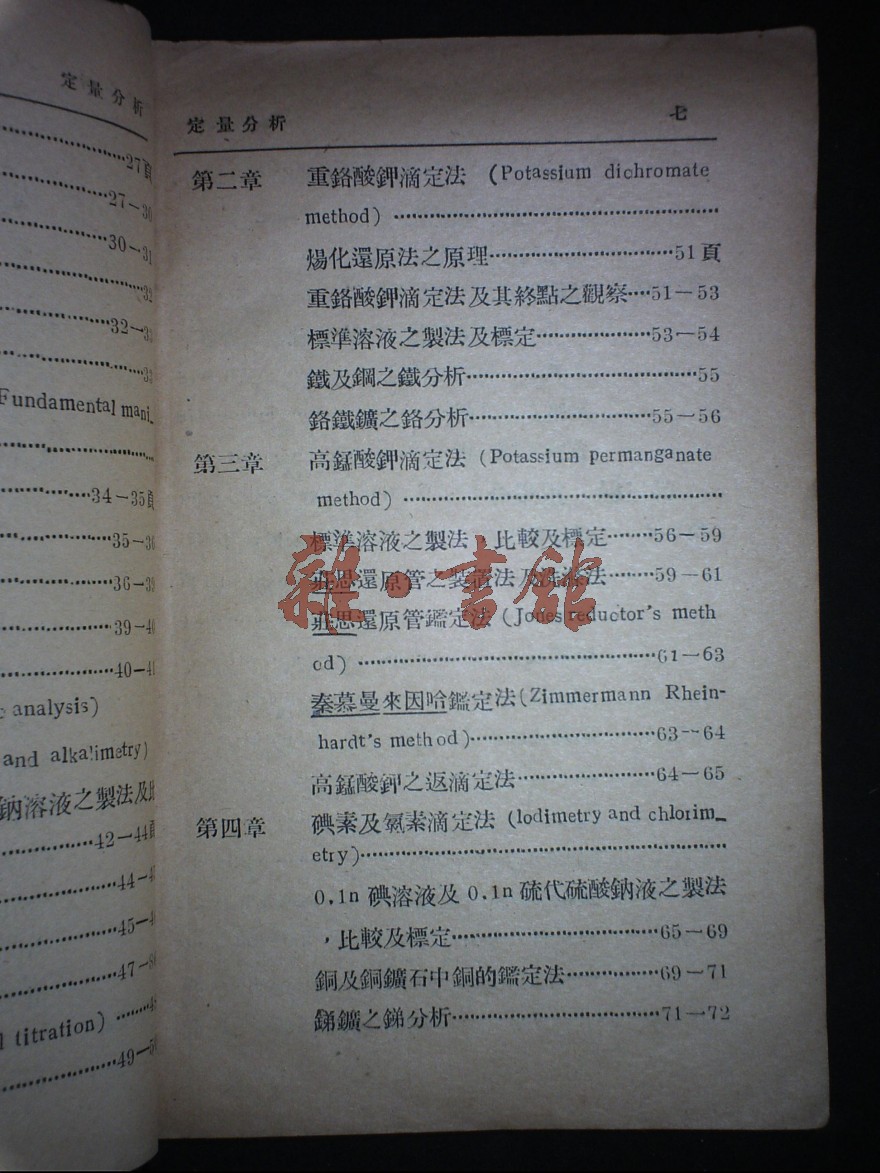 定量分析
27頁
27—30
30—31
32
32—33
33
Fundamental mani_
34—35頁
35—36
36—39
39—40
40—41
analysis)
and alkalimetry)
鈉溶液之製法及比
42—44頁
45—4
titration)
定量分析 七
第二章 重鉻酸鉀滴定法 (Potassium dichromate
method) ………………………………
煬化還原法之原理………………51頁
重鉻酸鉀滴定法及其終點之觀察…51—53
標準溶液之製法及標定…………53—54
鐵及鋼之鐵分析……………………55
鉻鐵鑛之鉻分析………………55—56
第三章 高錳酸鉀滴定法 (Potassium permanganate
method) ………………………………
標準溶液之製法、比較及標定……56—59
莊思還原管之裝置法及洗滌法……59—61
莊思還原管鑑定法 (Jones reductor's meth
od) ……………………………61—63
秦慕曼來因哈鑑定法(Zimmermann Rhein-
hardt's method)…………………63—64
高錳酸鉀之返滴定法……………64—65
第四章 碘素及氯素滴定法 (Iodimetry and chlorim_
etry)……………………………………
0.1n 碘溶液及 0.1n 硫代硫酸鈉液之製法
，比較及標定……………………65—69
銅及銅鑛石中銅的鑑定法………69—71
銻鑛之銻分析……………………71—72
雜·書館